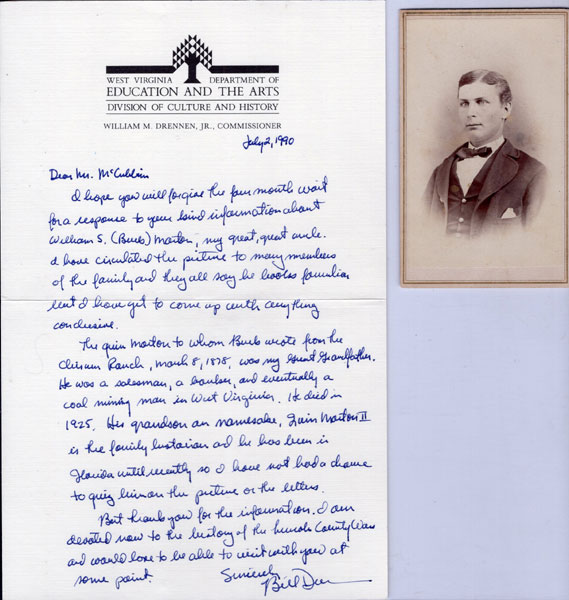 WEST VIRGINIA DEPARTMENT OF
EDUCATION AND THE ARTS
DIVISION OF CULTURE AND HISTORY
WILLIAM M. DRENNEN, JR., COMMISSIONER
July 2, 1990
Dear Mr. McCubbin
I hope you will forgive the four month wait
for a response to your kind information about
William S. (Buck) Morton, my great, great uncle.
I have circulated the picture to many members
of the family and they all say he looks familiar
but I have yet to come up with anything
conclusive.
The Quin Morton to whom Buck wrote from the
Chisum Ranch, March 8, 1878, was my Great Grandfather.
He was a salesman, a banker, and eventually a
coal mining man in West Virginia. He died in
1925. His grandson and namesake, Quin Morton II
is the family historian and he has been in
Florida until recently so I have not had a chance
to quiz him on the picture or the letters.
But thank you for the information. I am
devoted now to the history of the Lincoln County Wars
and would love to be able to visit with you at
some point.
Sincerely
Bill Drennen